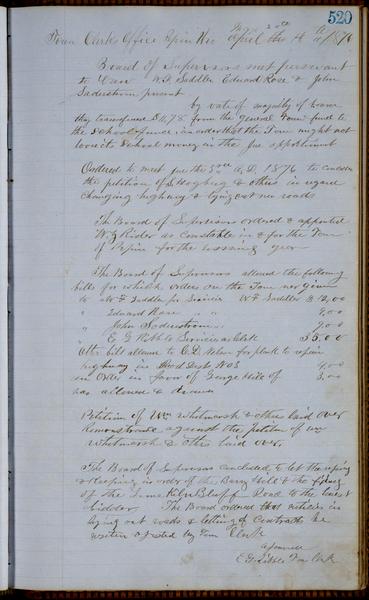 520
Town Clerks Office Pepin Wis April the 4th 1876
Board of Supervisors met persuant
to Law W.F. Saddler Edward Rose & John
Soderstrom present
by vote of majority of board
they transferred $11.78 from the General Town fund to
the school in order that the Town might not
loose its school money in the apportinment
Ordered to meet June the 3rd A.D. 1876 to consider
the petition of & others in regard
changing highway & lying out new roads
The Board of Supervisors ordered & appointed
W. J. Rider as Constable in & for the Town
of Pepin for the ensuing year
The Board of Supervisors allowed the following
bills for which orders on the Town were given
to W F Saddler for Service W F Saddler $12,00
" Edward Rose " " 9,00
" John Soderstrom " 9,00
" E G Services as Clerk 35.00
Also bill allowed to C.D. Nelson for plank to repair
highway in Road Dist No 3 4,00
an Order in favor of George Hile of 3,00
was allowed & drawn
Petition of Wm Whitmarsh & others laid over
Remonstrance against the petition of Wm
Whitmarsh & others laid over
The Board of Supervisors concluded to let the
& Keeping in order of the Hill & the fixing
of the Lime Kiln Bluff Road to the lowest
bidder The Board ordered that notices in
lying out roads & letting of Contracts be
written & posted by Town Clerk
Adjourned
E.G. Town Clerk